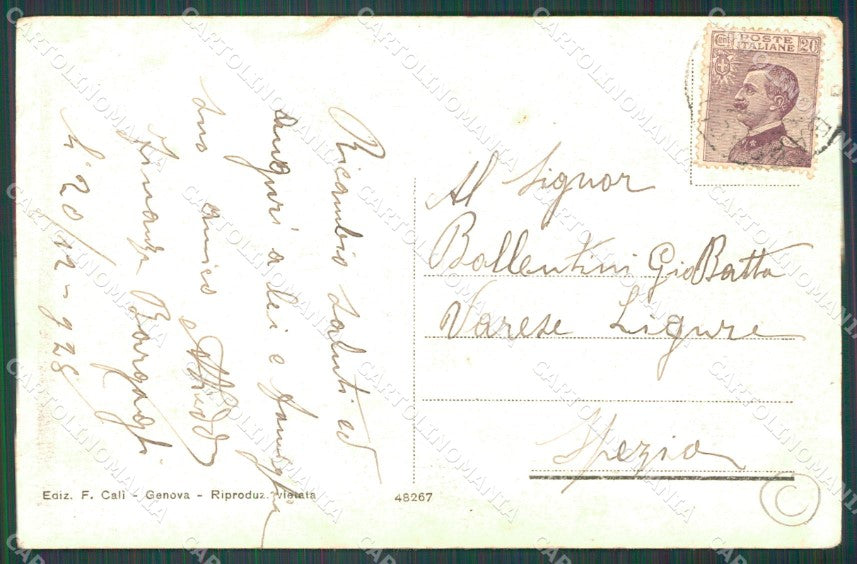 Ricambio saluti ed
auguri a lei e famiglia
suo amico
Armando
li 20/12-928
POSTE
ITALIANE
20
Al Signor
Bollentini Gio Batta
Varese Ligure
Spezia
Ediz. F. Calì - Genova - Riproduz. vietata
48267
©
CARTOLINOMANIA